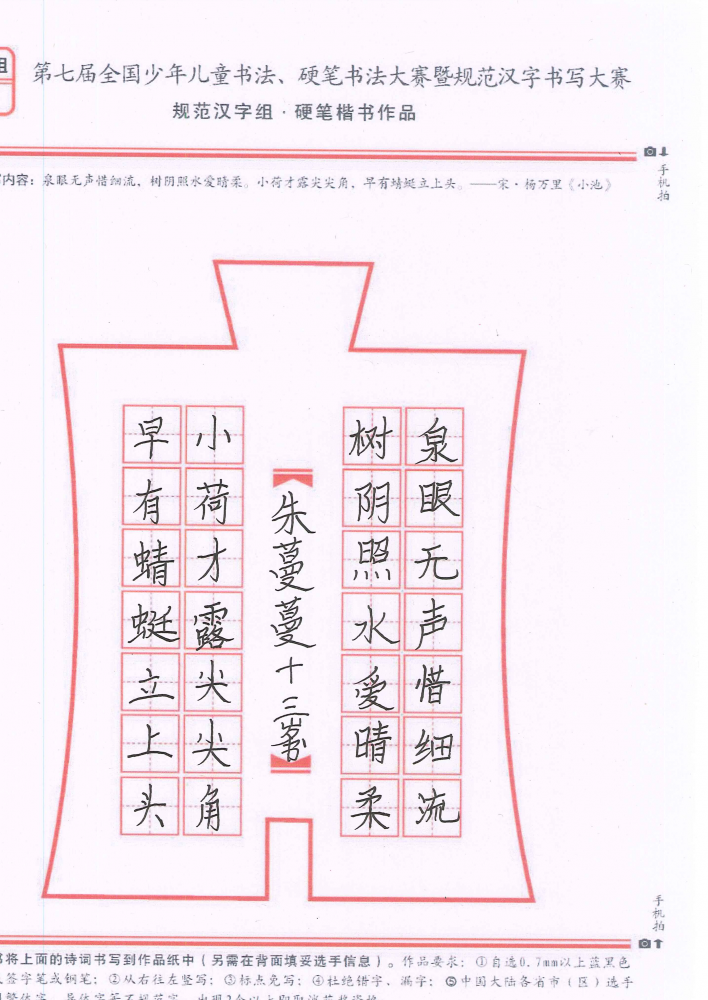 组
第七届全国少年儿童书法、硬笔书法大赛暨规范汉字书写大赛
规范汉字组·硬笔楷书作品
手机拍
内容：泉眼无声惜细流，树阴照水爱晴柔。小荷才露尖尖角，早有蜻蜓立上头。——宋·杨万里《小池》
泉眼无声惜细流
树阴照水爱晴柔
朱蔓蔓十三岁书
小荷才露尖尖角
早有蜻蜓立上头
手机拍
将上面的诗词书写到作品纸中（另需在背面填妥选手信息）。作品要求：①自选0.7mm以上蓝黑色
签字笔或钢笔；②从右往左竖写；③标点免写；④杜绝错字、漏字；⑤中国大陆各省市（区）选手